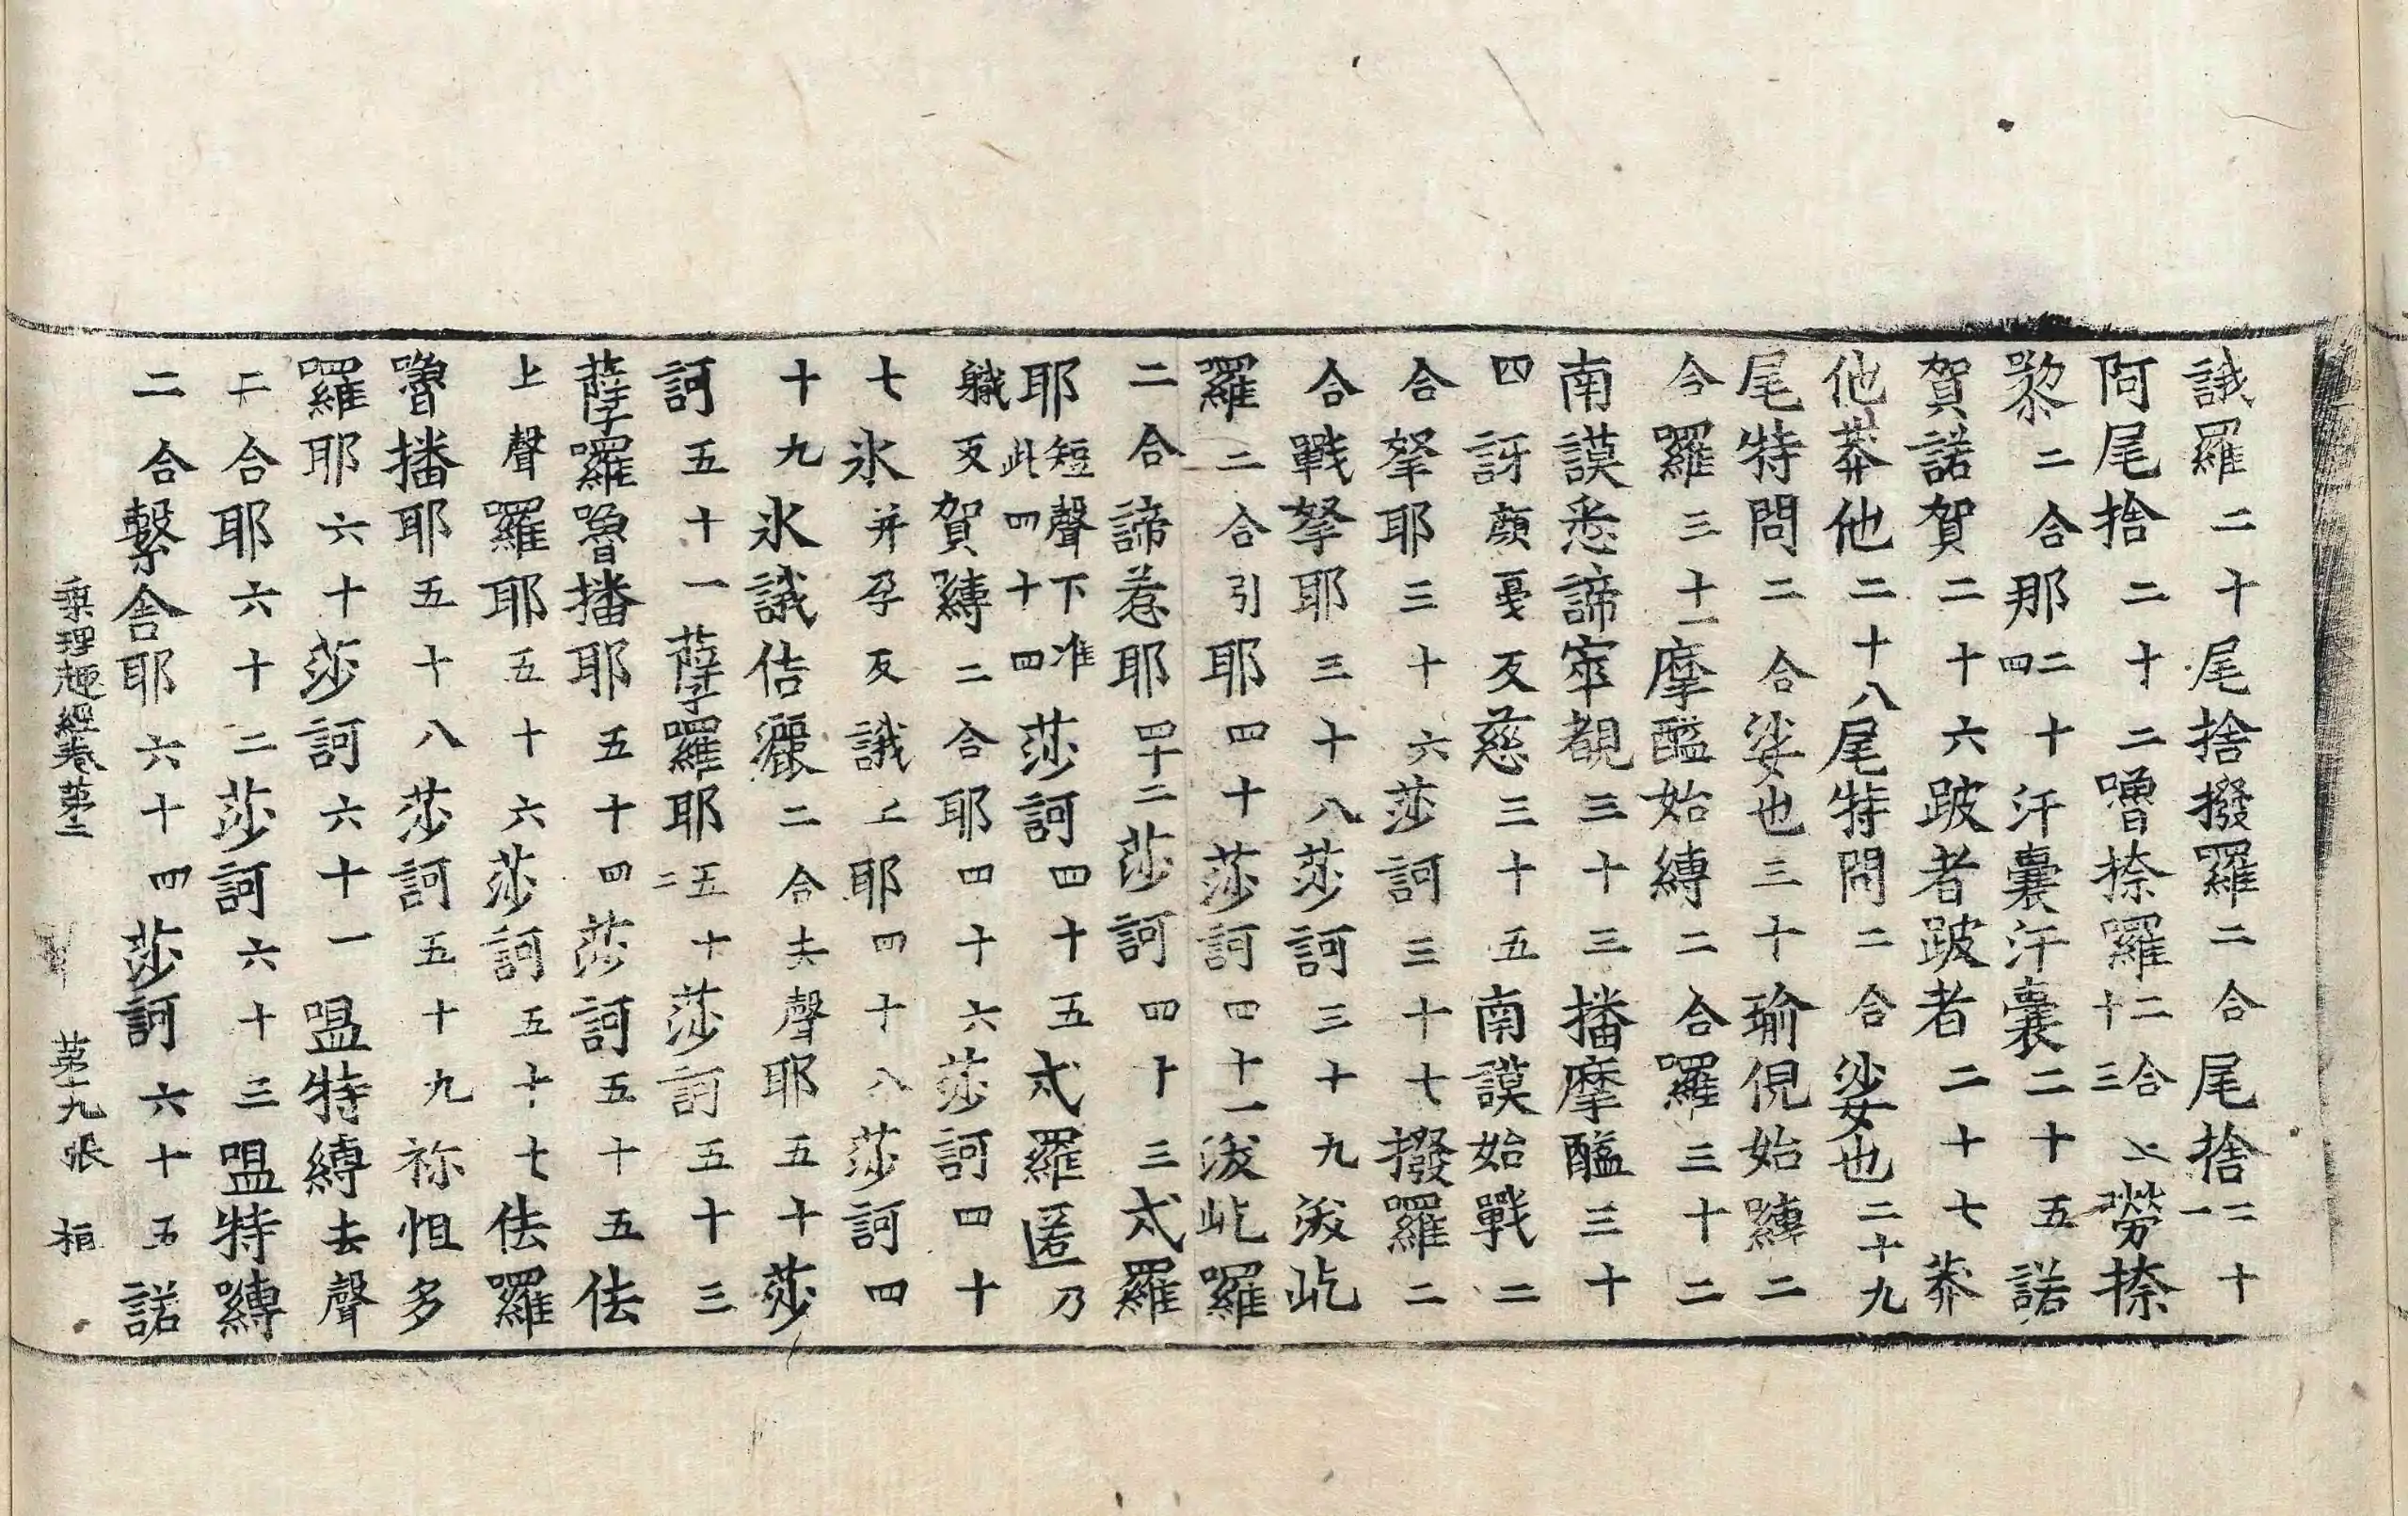 誐羅二十尾捨撥羅二合尾捨二十一
阿尾捨二十二嚕捺羅二合上十三勞捺
黎二合那二十四汗囊汗囊二十五諾
賀諾賀二十六跛者跛者二十七莽
他莽他二十八尾特問二合娑也二十九
尾特問二合娑也三十瑜倪始嚩二
合羅三十一摩醯始縛二合羅三十二
南謨悉諦窣覩三十三播摩醯三十
四訝顏憂反慈三十五南謨始戰二
合拏耶三十六莎訶三十七撥羅二
合戰拏耶三十八莎訶三十九波屹
羅二合引耶四十莎訶四十一波屹羅
二合諦惹耶四十二莎訶四十三忒羅
耶短聲下准此四十四莎訶四十五忒羅匿乃
軄反賀縛二合耶四十六莎訶四十
七氷并孕反誐上耶四十八莎訶四
十九氷誐佶儷二合去聲耶五十莎
訶五十一薩羅耶五十二莎訶五十三
薩囉嚕播耶五十四莎訶五十五佉
上聲羅耶五十六莎訶五十七佉羅
嚕播耶五十八莎訶五十九祢怛多
囉耶六十莎訶六十一嗢特縛去聲
二合耶六十二莎訶六十三嗢特嚩
二合繫舍耶六十四莎訶六十五諾
乘理趣經卷第二 第十九張 桓